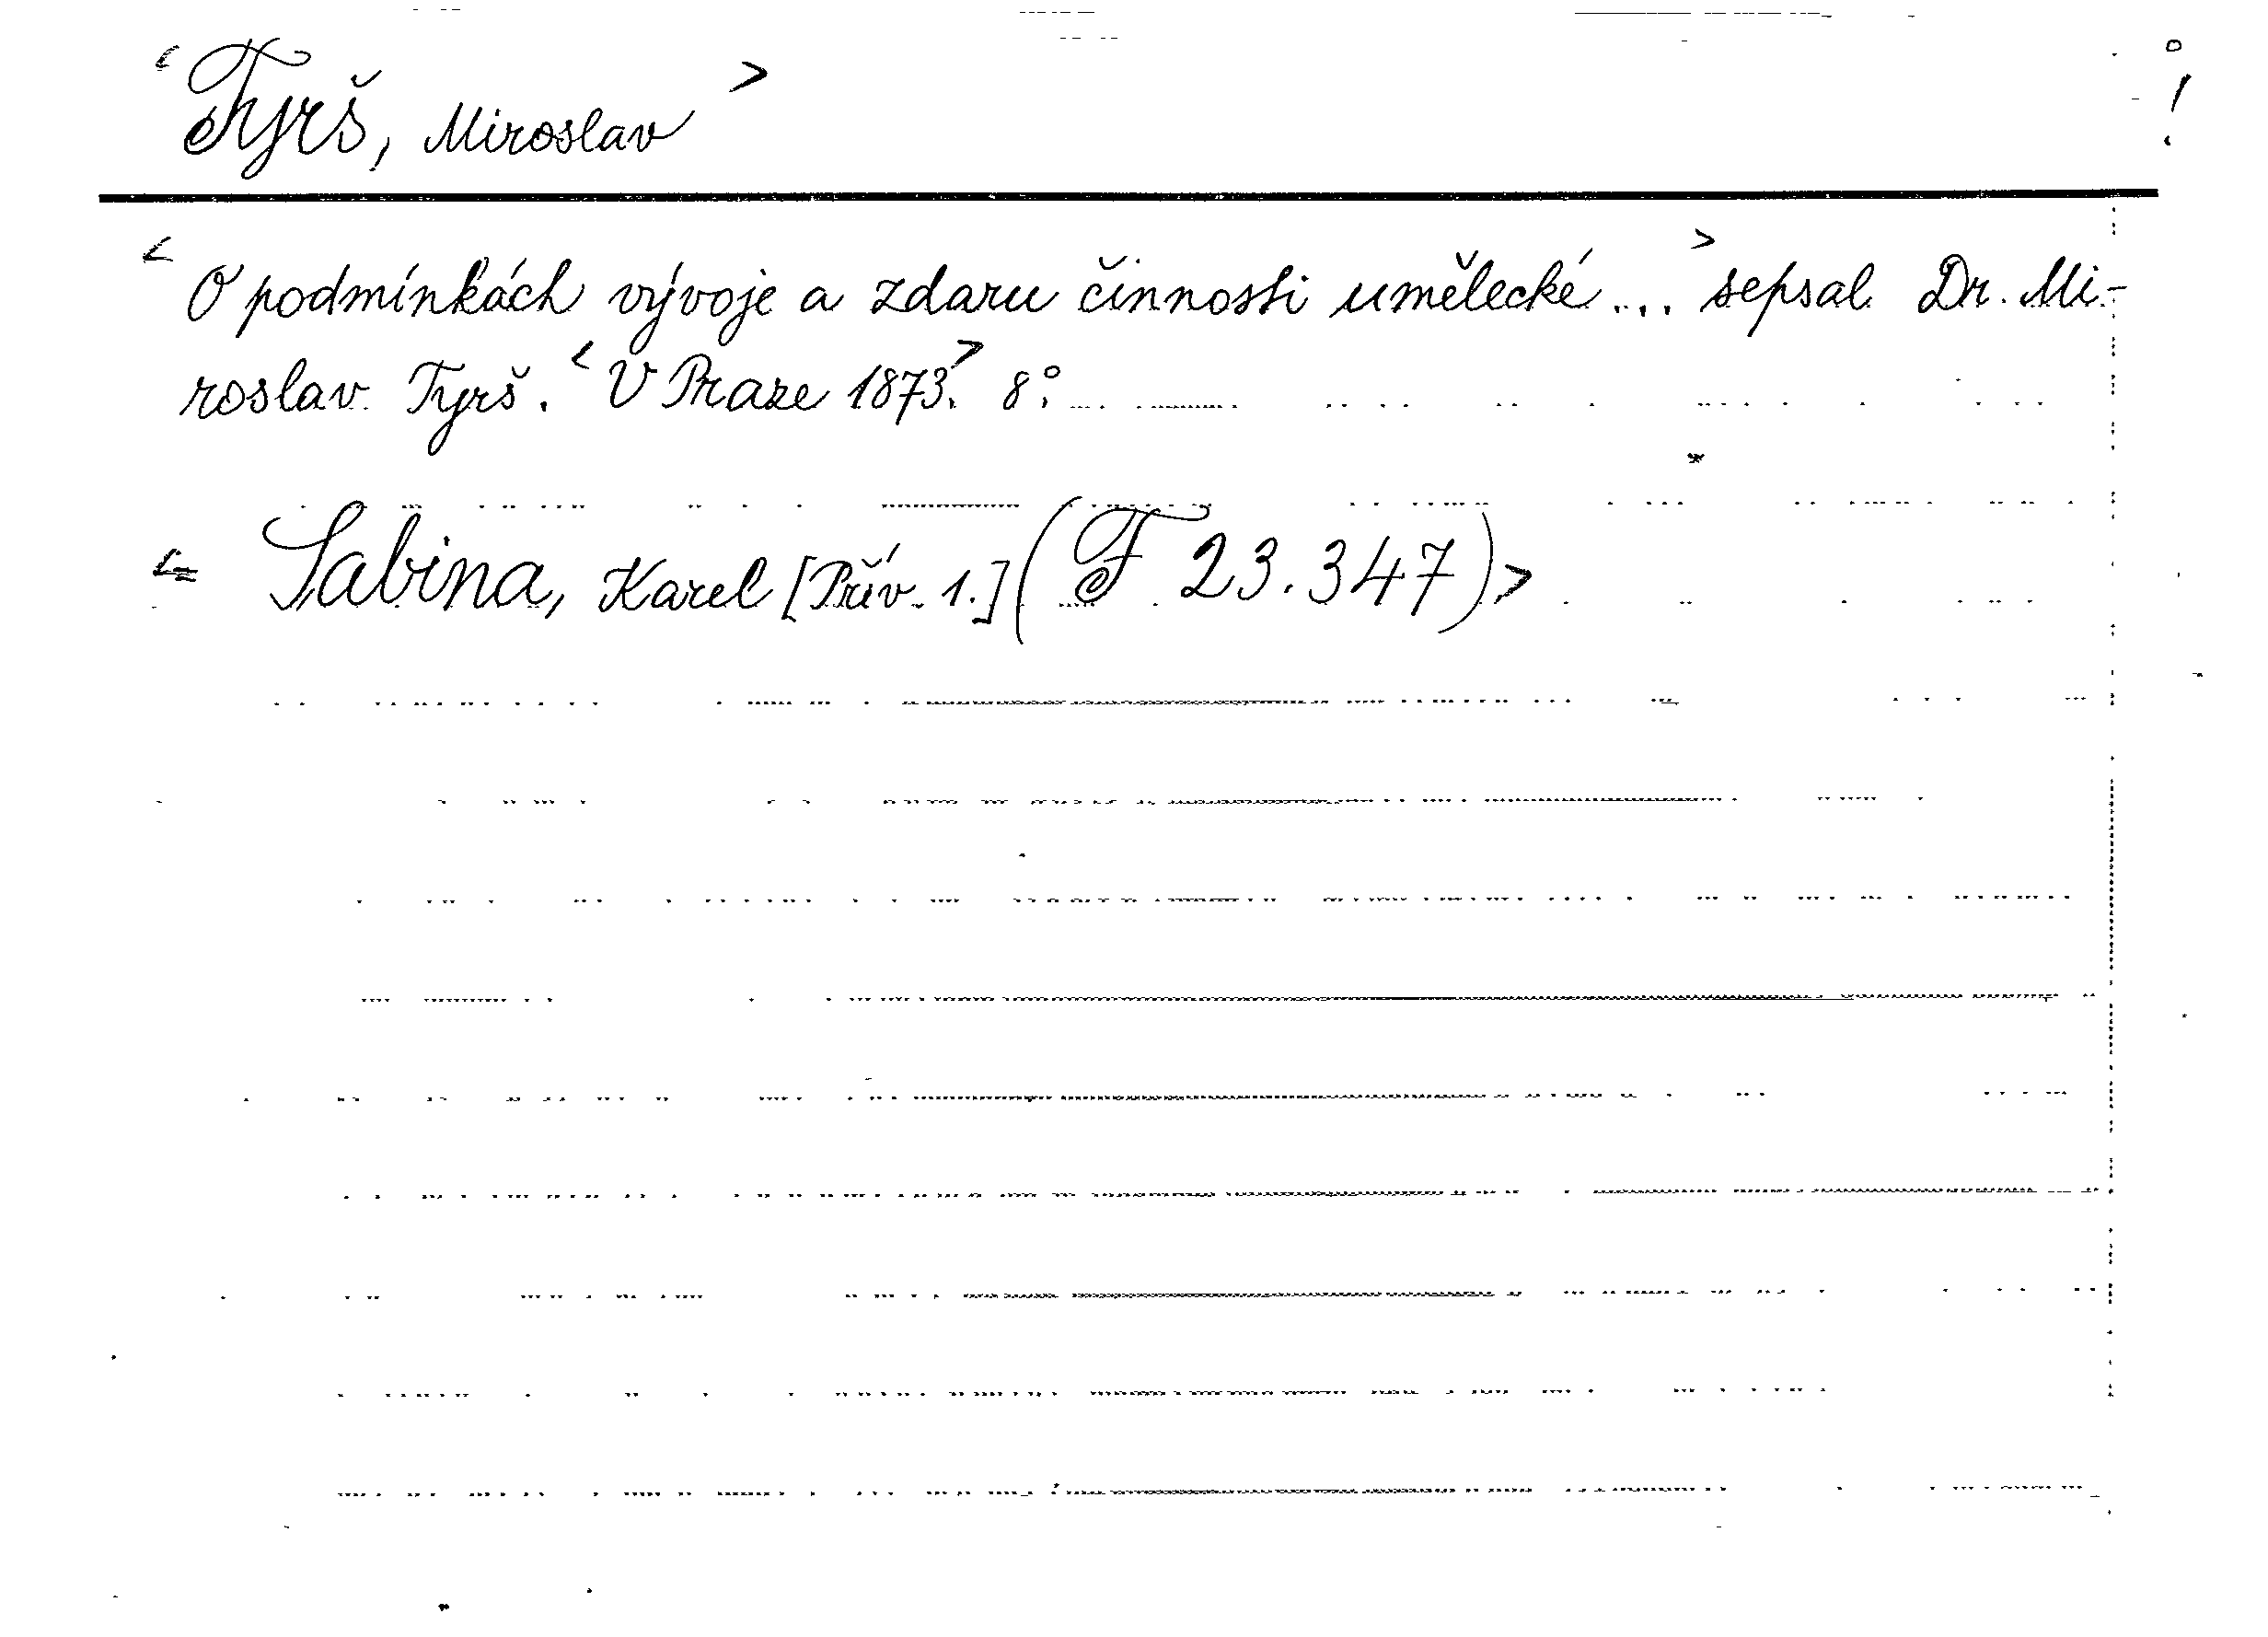 < Tyrš, Miroslav > !
< O podmínkách vývoje a zdaru činnosti umělecké ... > sepsal Dr. Mi-
roslav Tyrš. < V Praze 1873. > 8°.
<= Sabina, Karel [Přív. 1.] (F 23.347) >